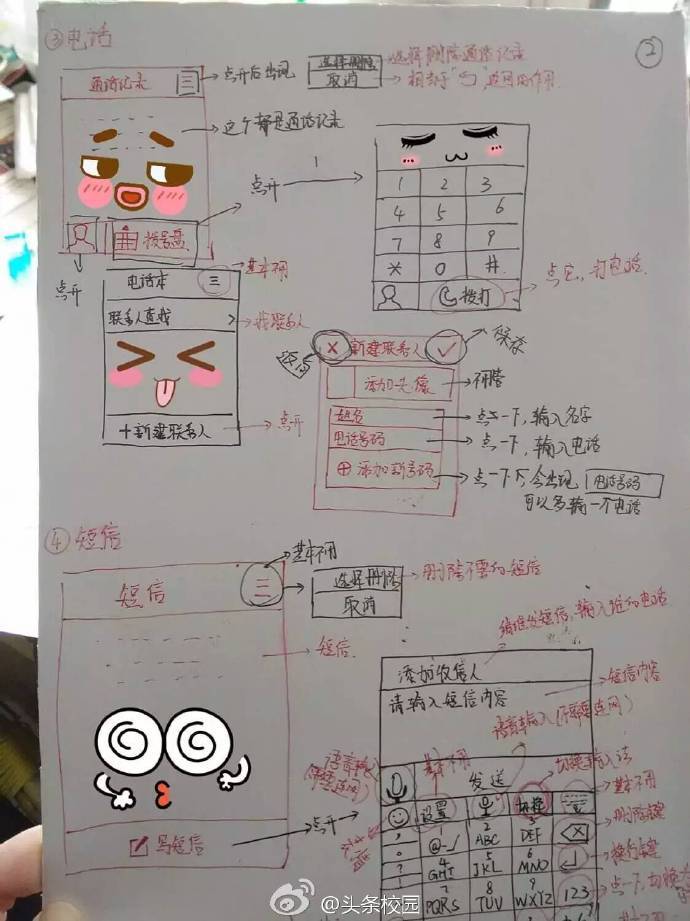 ③电话
②
通话记录
三
点开后出现
选择删除
取消
选择删除通话记录
相当于"⤺"返回的作用
这个都是通话记录
点开
1
拨号盘
点开
1 2 3
4 5 6
7 8 9
* 0 #
拨打
点它,打电话
基本不用
电话本
三
联系人查找
找联系人
+新建联系人
点开
返回
× 新建联系人 ✓
保存
添加头像
不用管
姓名
点一下,输入名字
电话号码
点一下,输入电话
⊕ 添加新号码
点一下,会出现 电话号码
可以多输一个电话
④短信
基本不用
短信
三
选择删除
取消
删除不要的短信
短信
写短信
点开
给谁发短信,输入谁的电话
添加收信人
请输入短信内容
短信内容
语音输入(不需要连网)
语音输入
基本不用
发送
切换输入法
设置
切换
基本不用
删除键
换行键
,
。
?
1
@-/
2
ABC
3
DEF
4
GHI
5
JKL
6
MNO
7
PQRS
8
TUV
9
WXYZ
123
点一下,切换为
@头条校园